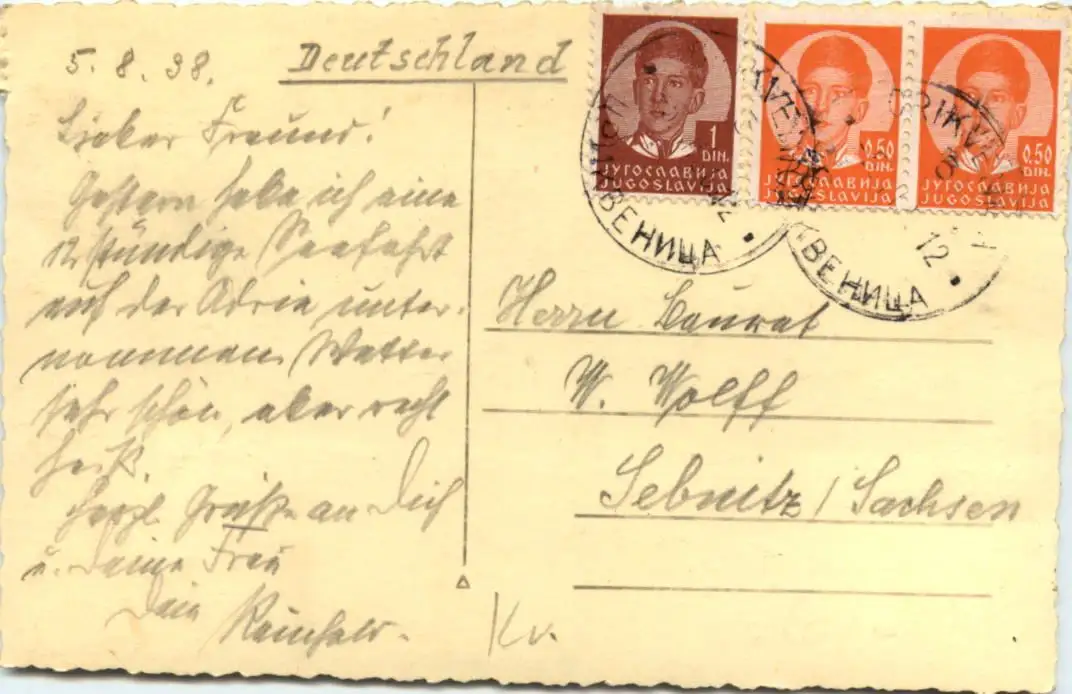 5. 8. 38.
Deutschland
Lieber Freund!
Gestern habe ich eine
12 stündige Seefahrt
auf der Adria unter-
nommen. Wetter
sehr schön, aber recht
heiß.
Herzl. Grüße an Dich
u. Deine Frau
Dein
Reinhold.
1
DIN.
ЈУГОСЛАВИЈА
JUGOSLAVIJA
0.50
DIN.
ЈУГОСЛАВИЈА
JUGOSLAVIJA
0.50
DIN.
ЈУГОСЛАВИЈА
JUGOSLAVIJA
ВЕНИЦА
CRIKV
12
ВЕНИЦА
Herrn Baurat
W. Wolff
Sebnitz / Sachsen
Kv.